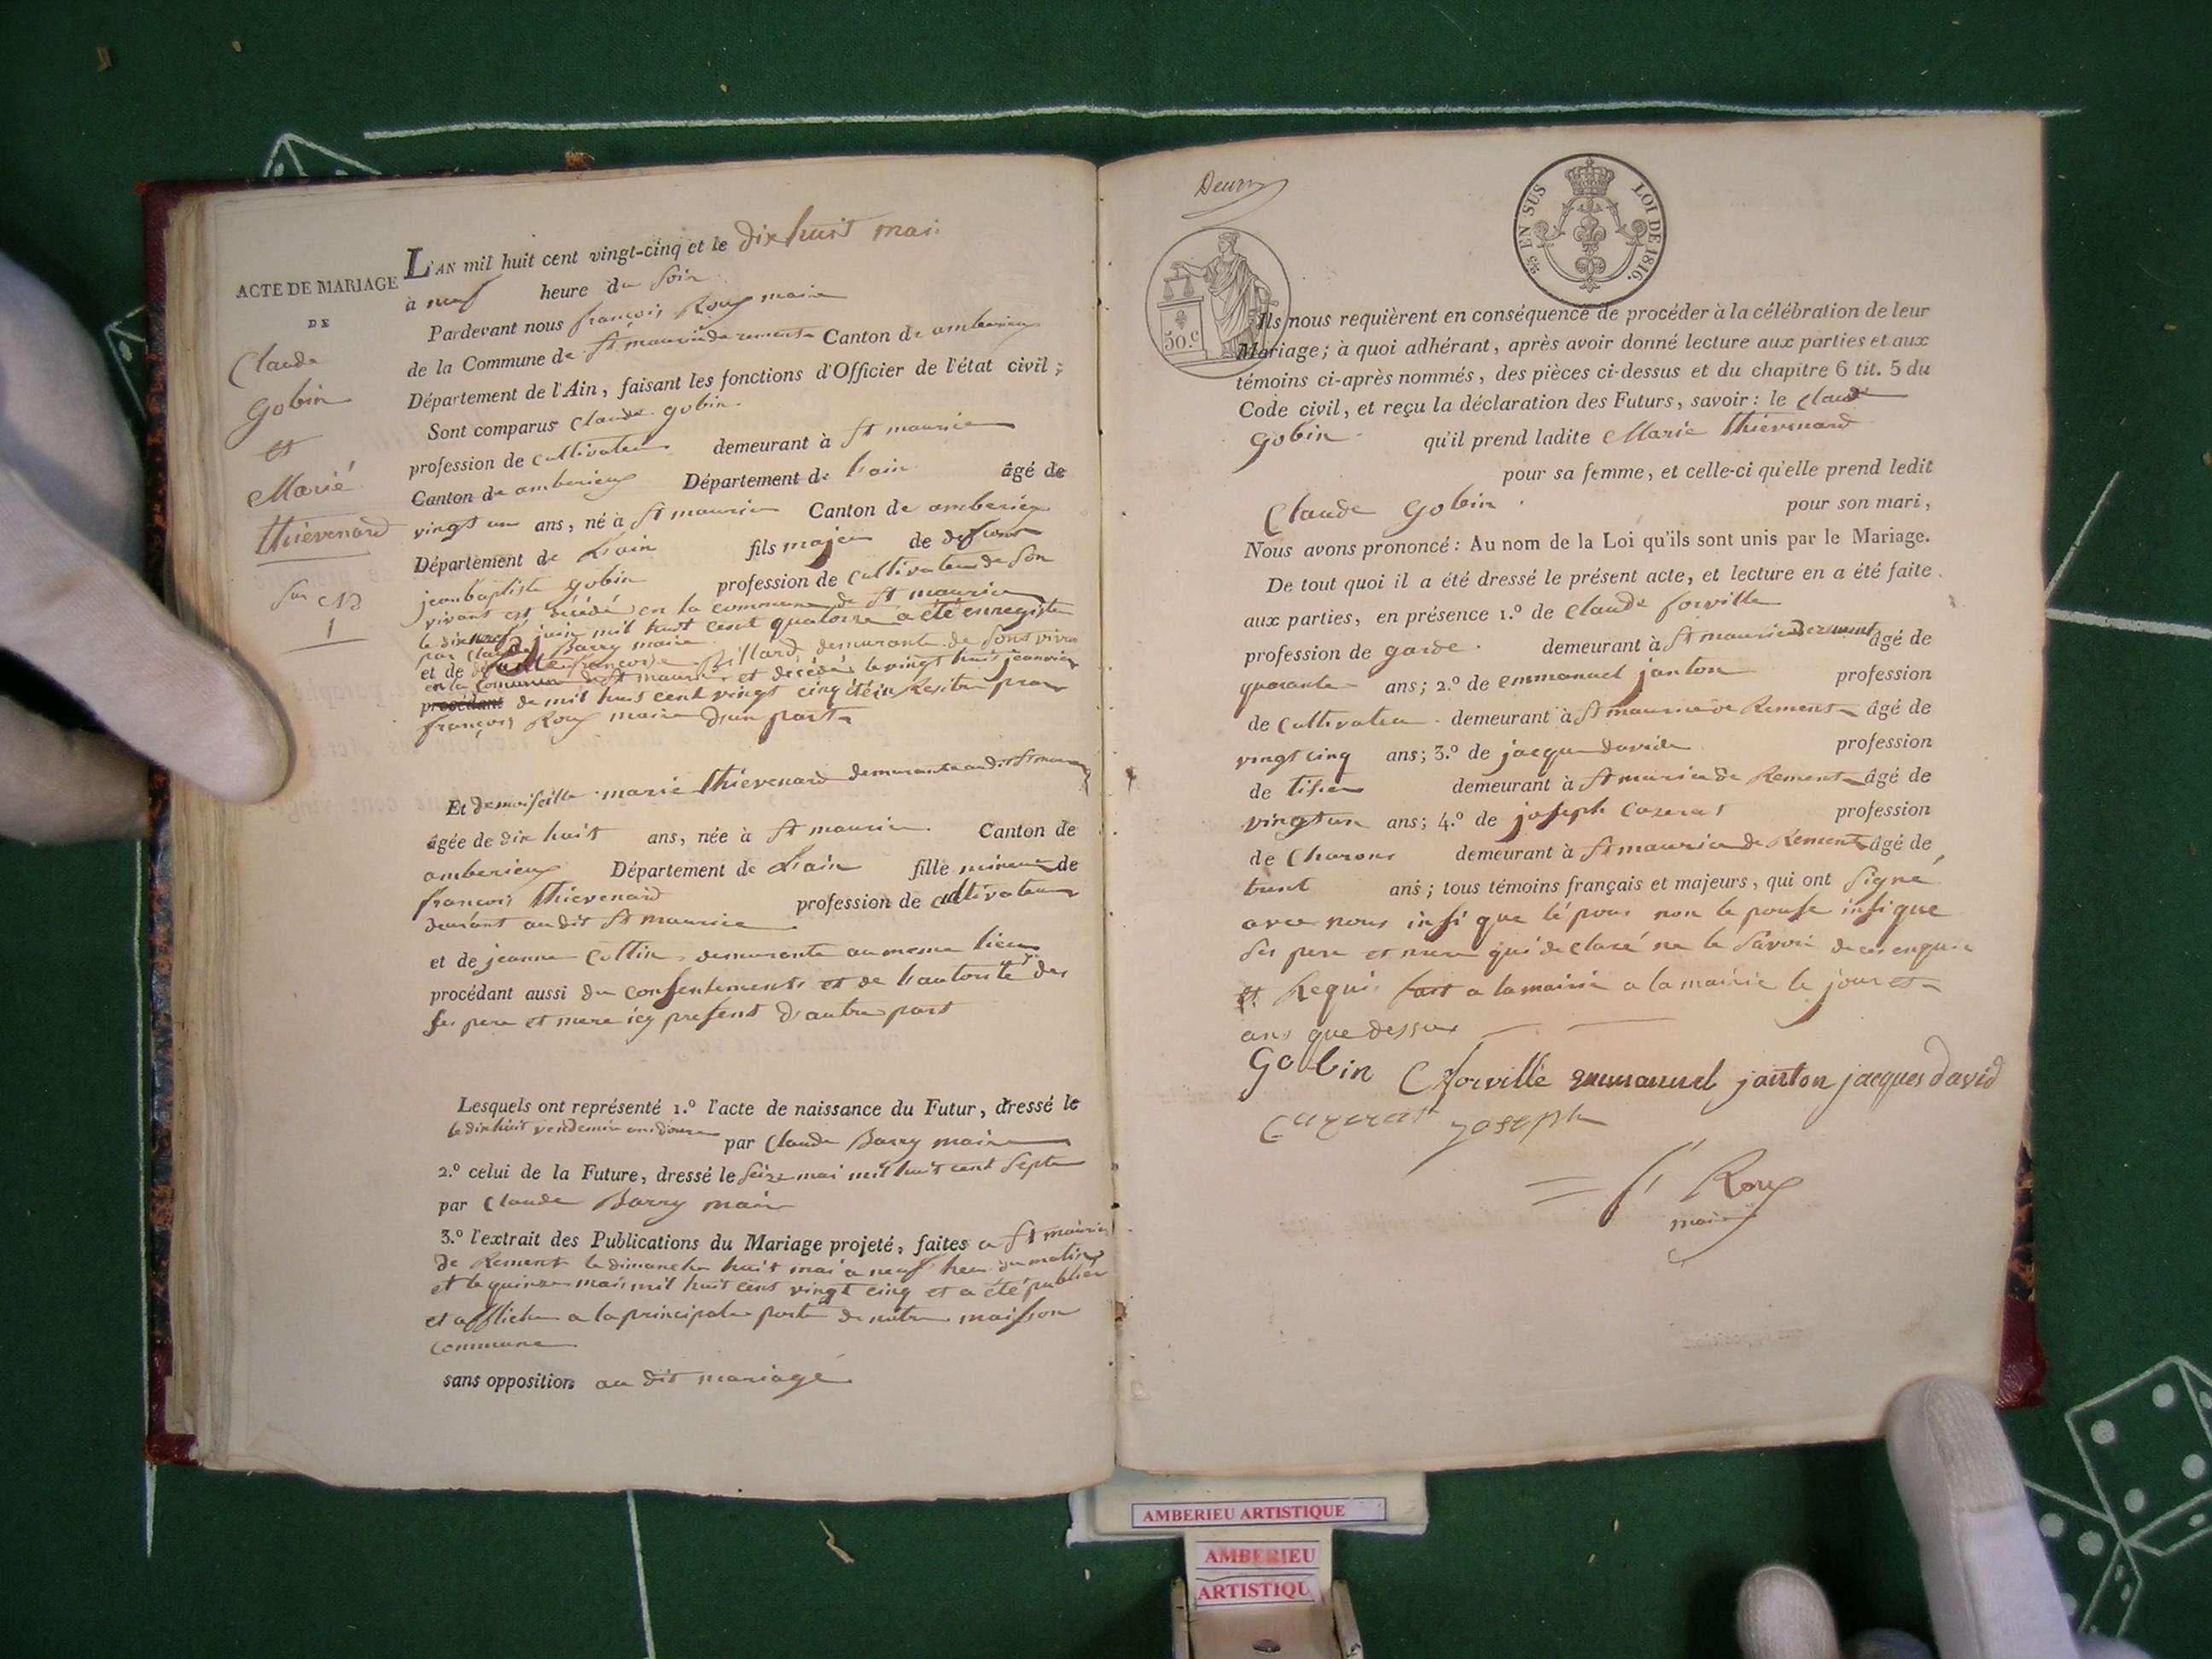 ACTE DE MARIAGE
DE
Claude
Gobin
et
Marié
thievenard
Sur
1
L'AN mil huit cent vingt-cinq et le dix huit mai
à neuf heure du soir
Pardevant nous francois Roux maire
de la Commune de St mauricederement Canton de amberieux
Département de l'Ain, faisant les fonctions d'Officier de l'état civil;
Sont comparus Claude gobin
profession de cultivateur demeurant à St maurice
Canton de amberieux Département de lain âgé de
vingt un ans, né à St maurice Canton de amberieux
Département de Lain fils majeur de deffunt
jeanbaptiste gobin profession de cultivateur de son
vivant est décédé en la commune de St maurice
le dixneuf juin mil huit cent quatorze a été enregistre
par Claude Barry maire
et de francoise Billard demurante de sont vivan
en la commune de St maurice et décédé le vingt huit jeanvier
procédant de mil huit cent vingt cinq
francois Roux maire d'un part
Et demoiselle marie thievenard demurante au dit St maurice
âgée de dix huit ans, née à St maurice Canton de
amberieux Département de Lain fille mineure de
francois thievenard profession de cultivateur
au dit St maurice
et de jeanne Collin demurante au meme lieu
procédant aussi du consentement et de l'autorité des
ses pere et mere icy present d'autre part
Lesquels ont représenté 1.º l'acte de naissance du Futur, dressé le
le dixhuit vendemiere an douze par Claude Barry maire
2.º celui de la Future, dressé le seize mai mil huit cent septe
par Claude Barry maire
3.º l'extrait des Publications du Mariage projeté, faites a St maurice
de Rement le dimanche huit mai a neuf heur du matin
et le quinze mai mil huit cent vingt cinq et a été publier
et afficher a la principale porte de notre maison
commune
sans opposition au dit mariage
50.c
5/3 EN SUS LOI DE 1816.
Ils nous requièrent en conséquence de procéder à la célébration de leur
Mariage; à quoi adhérant, après avoir donné lecture aux parties et aux
témoins ci-après nommés, des pièces ci-dessus et du chapitre 6 tit. 5 du
Code civil, et reçu la déclaration des Futurs, savoir: le claude
gobin qu'il prend ladite Marie thievenard
pour sa femme, et celle-ci qu'elle prend ledit
Claude Gobin pour son mari,
Nous avons prononcé: Au nom de la Loi qu'ils sont unis par le Mariage.
De tout quoi il a été dressé le présent acte, et lecture en a été faite
aux parties, en présence 1.º de Claude forville
profession de garde demeurant à St mauricederement âgé de
quarante ans; 2.º de emmanuel janton profession
de cultivateur demeurant à St maurice de Rement âgé de
vingt cinq ans; 3.º de jacque david profession
de tisier demeurant à St maurice de Rement âgé de
vingtun ans; 4.º de joseph Cozerat profession
de Charons demeurant à St maurice de Rement âgé de
trent ans; tous témoins français et majeurs, qui ont signé
avec nous insi que lépoux non le pouse insi que
ses pere et mere qui declaré ne le savoir de ces enquis
et Requis fait a lamairie a la mairie le jour et
ans que dessus
Gobin C forville emmanuel janton jacques david
Cuzerat joseph
f Roux
maire
AMBERIEU ARTISTIQUE
AMBERIEU
ARTISTIQU